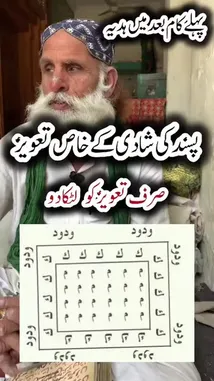 پہلے کام بعد میں ہدیہ
پسند کی شادی کے خاص تعویز
صرف تعویز کو لٹکا دو
ودود ودود
ودود ودود
ك ك ك ك ك
م م م م م م
م م م م م م
م م م م م م
م م م م م م
ودود ودود
ودود ودود